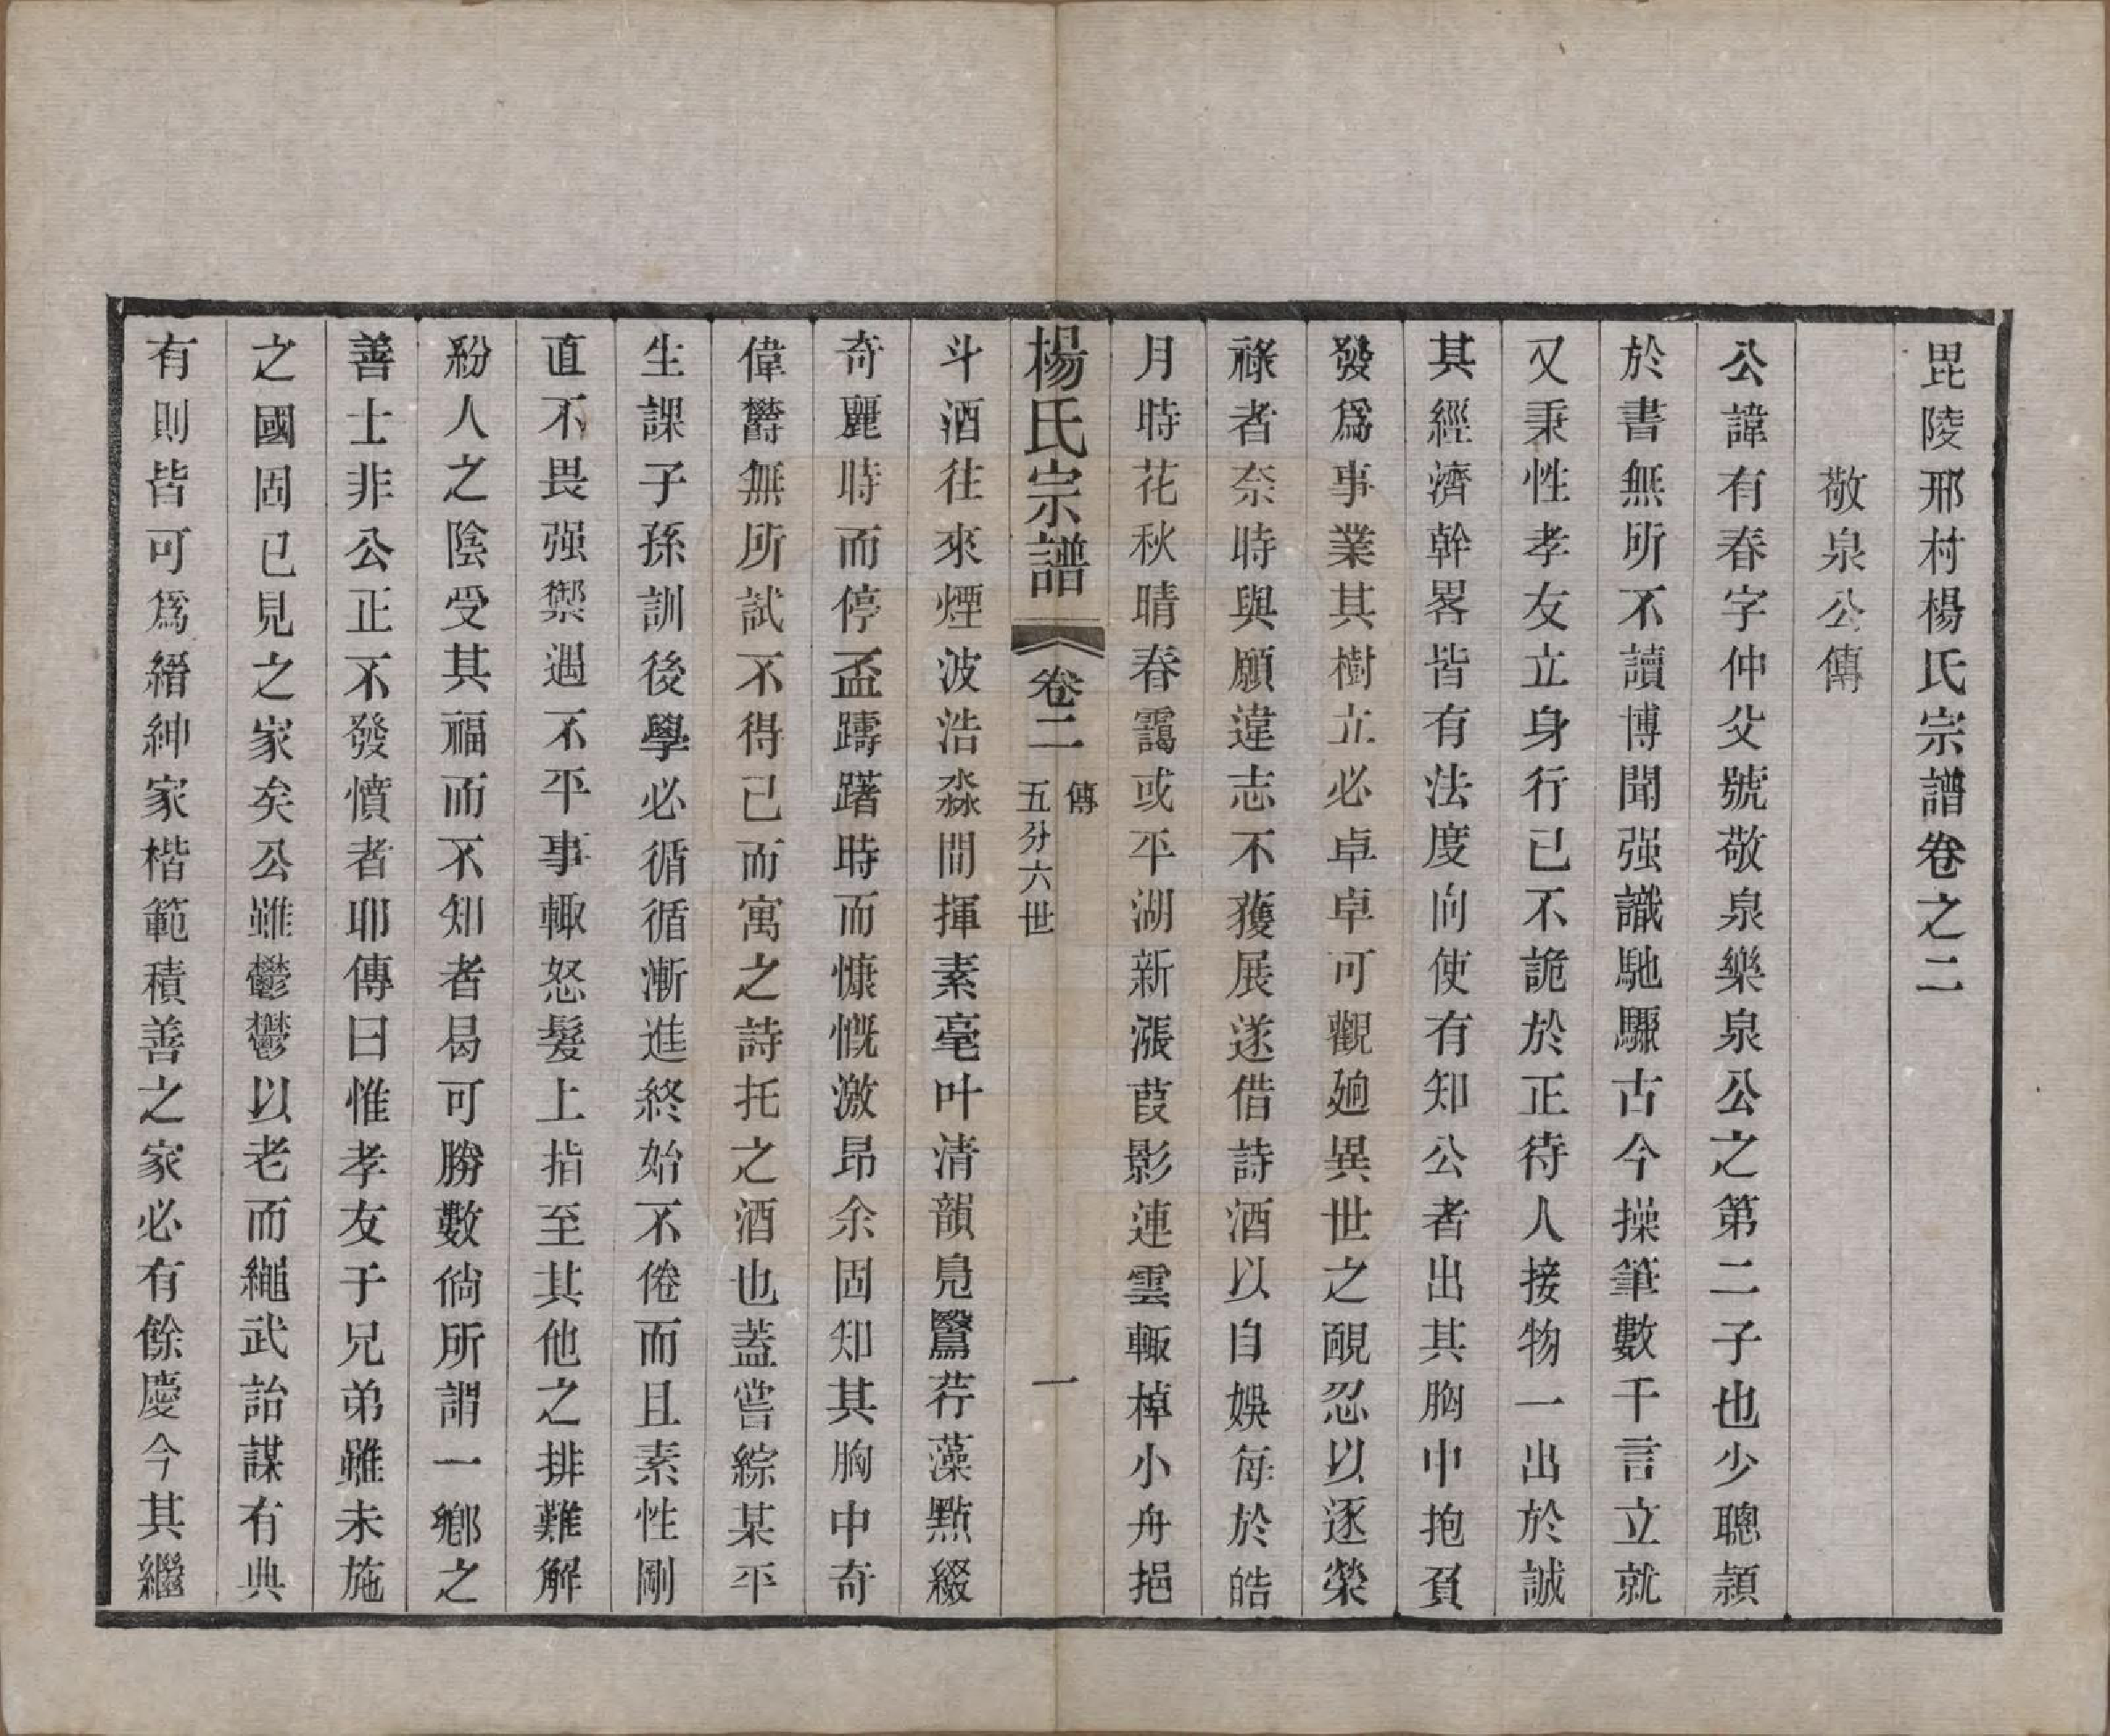 毘陵邢村楊氏宗譜卷之二
敬泉公傳
公諱有春字仲父號敬泉樂泉公之第二子也少聰頴
於書無所不讀博聞强識馳驟古今操筆數千言立就
又秉性孝友立身行已不詭於正待人接物一出於誠
其經濟幹畧皆有法度向使有知公者出其胸中抱負
發爲事業其樹立必卓卓可觀廼異世之覥忍以逐榮
祿者奈時與願違志不獲展遂借詩酒以自娛每於皓
月時花秋晴春靄或平湖新漲葭影連雲輙棹小舟挹
楊氏宗譜 卷二 傳 五分六世 一
斗酒往來煙波浩淼間揮素毫叶清韻鳧鷖荇藻點綴
奇麗時而停盃躊躇時而慷慨激昂余固知其胸中奇
偉鬱無所試不得已而寓之詩托之酒也蓋嘗綜某平
生課子孫訓後學必循循漸進終始不倦而且素性剛
直不畏强禦遇不平事輙怒髮上指至其他之排難解
紛人之陰受其福而不知者曷可勝數倘所謂一鄕之
善士非公正不發憤者耶傳曰惟孝友于兄弟雖未施
之國固已見之家矣公雖鬱鬱以老而繩武詒謀有典
有則皆可爲縉紳家楷範積善之家必有餘慶今其繼